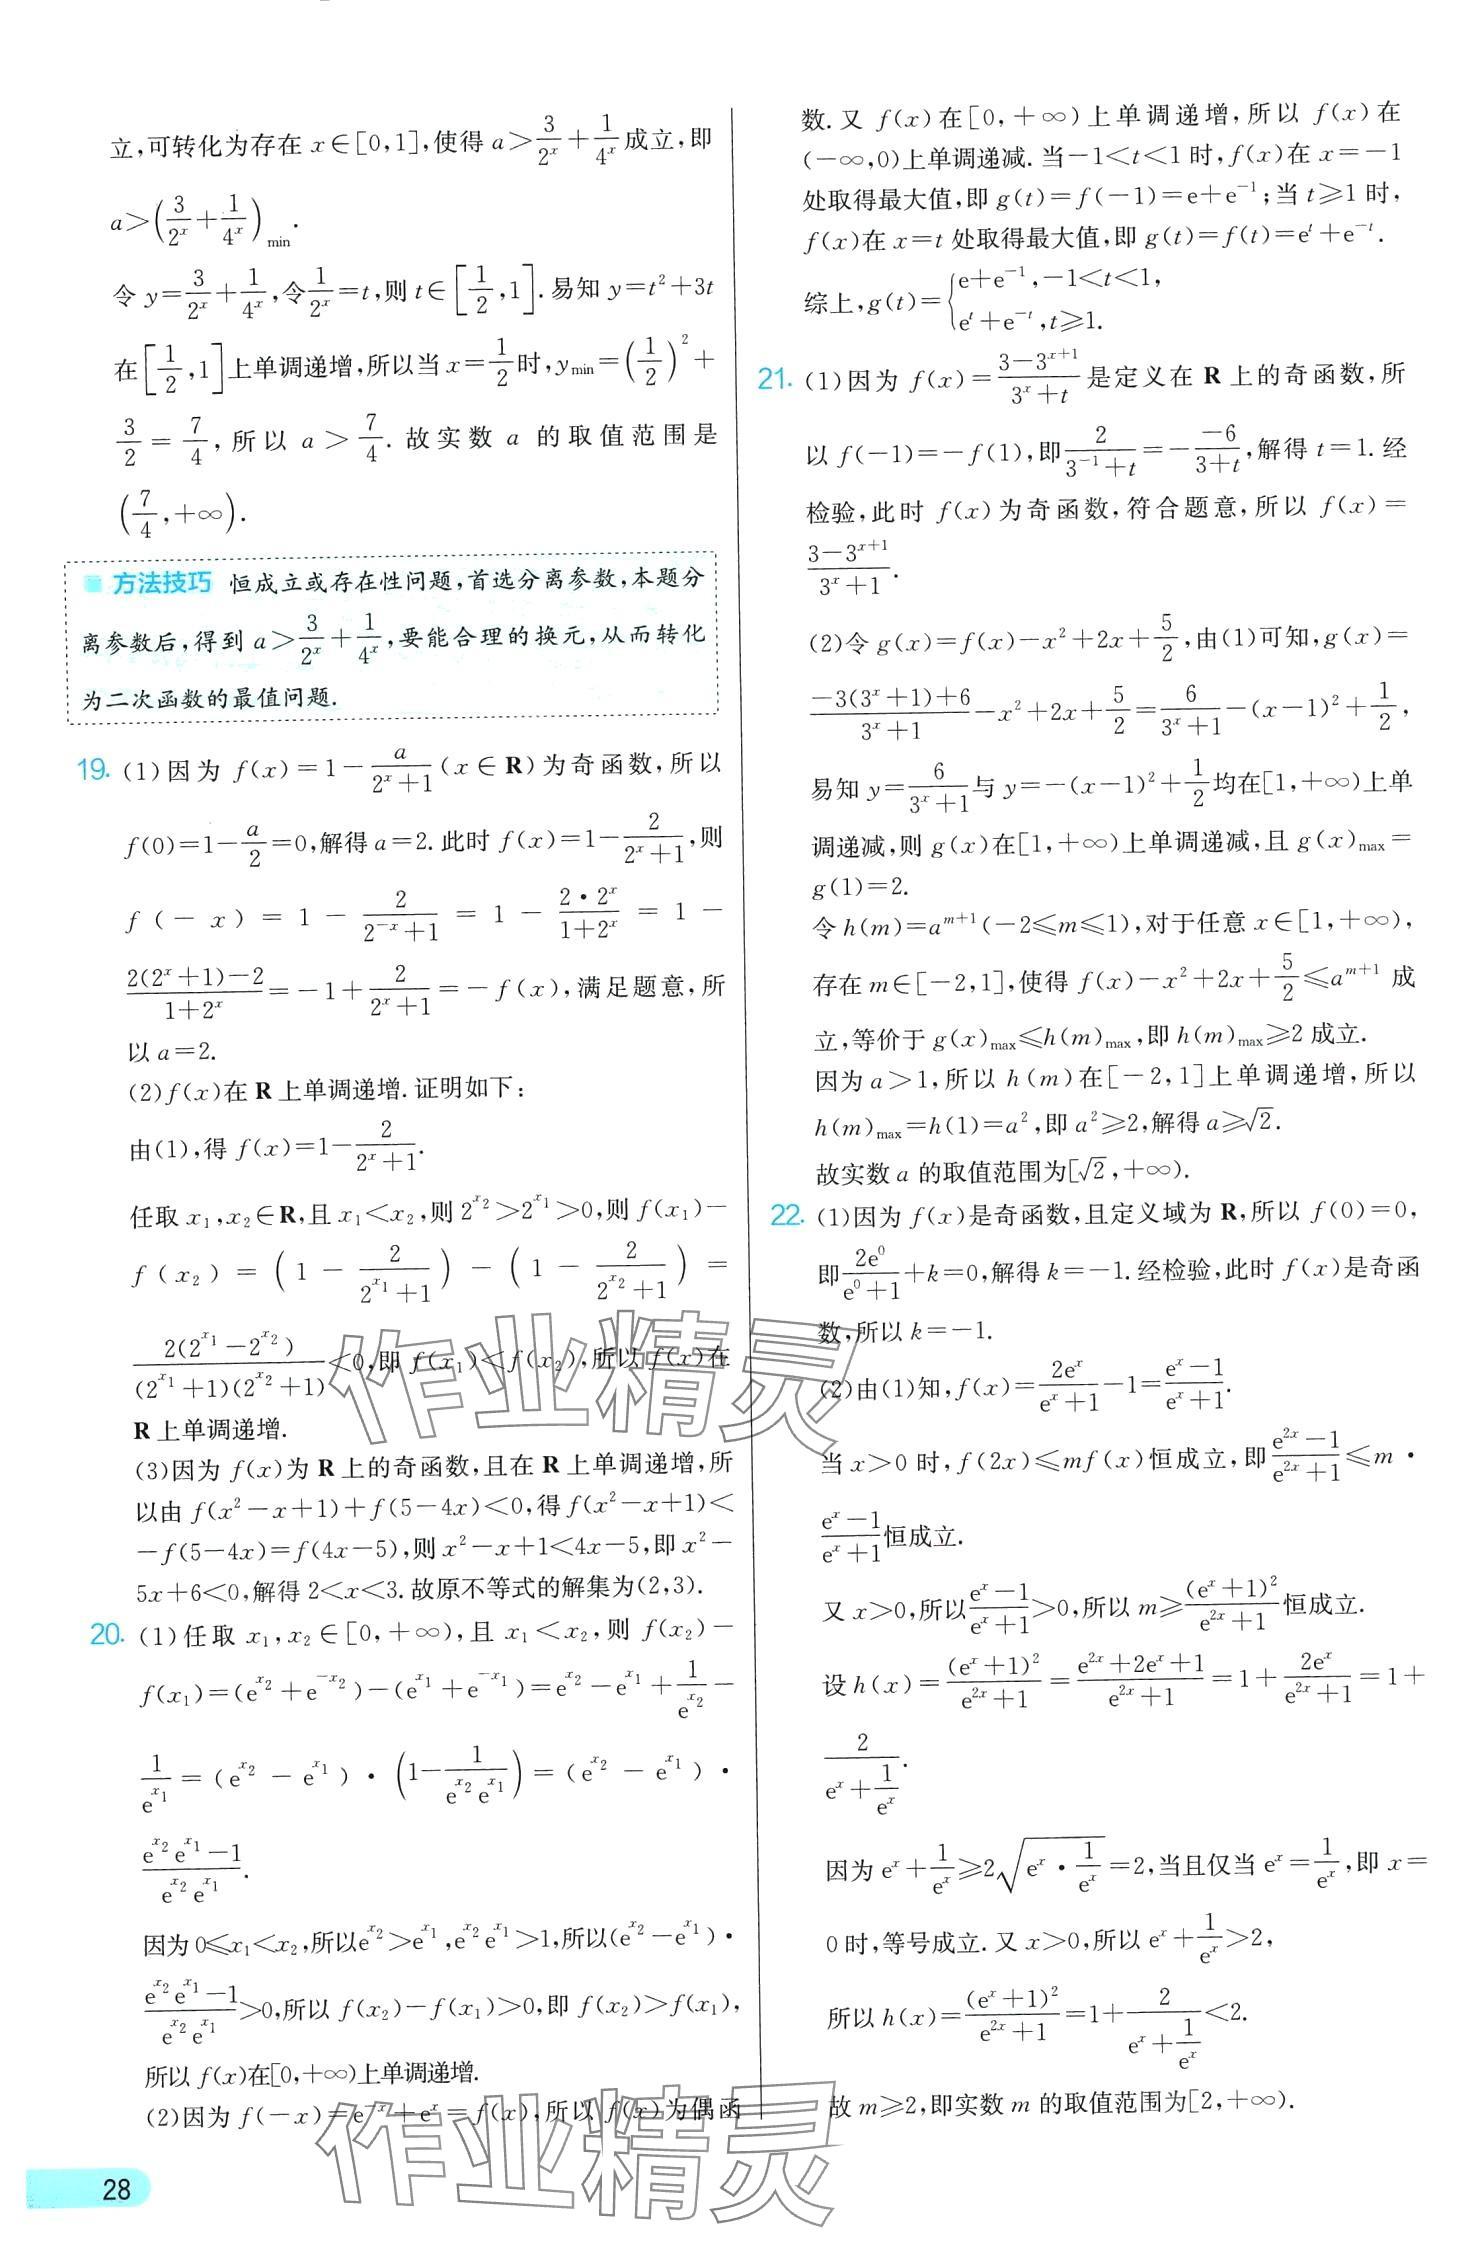 立,可转化为存在 x∈[0,1],使得 a>3/2^x+1/4^x成立,即
a>(3/2^x+1/4^x)_min.
令 y=3/2^x+1/4^x,令1/2^x=t,则 t∈[1/2,1].易知 y=t²+3t
在[1/2,1]上单调递增,所以当 x=1/2时,y_min=(1/2)²+
3/2=7/4,所以 a>7/4.故实数 a 的取值范围是
(7/4,+∞).
方法技巧 恒成立或存在性问题,首选分离参数,本题分
离参数后,得到 a>3/2^x+1/4^x,要能合理的换元,从而转化
为二次函数的最值问题.
19. (1)因为 f(x)=1-a/(2^x+1)(x∈R)为奇函数,所以
f(0)=1-a/2=0,解得 a=2.此时 f(x)=1-2/(2^x+1),则
f(-x)=1-2/(2^{-x}+1)=1-2·2^x/(1+2^x)=1-
[2(2^x+1)-2]/(1+2^x)=-1+2/(2^x+1)=-f(x),满足题意,所
以 a=2.
(2)f(x)在 R 上单调递增.证明如下:
由(1),得 f(x)=1-2/(2^x+1).
任取 x₁,x₂∈R,且 x₁<x₂,则 2^{x₂}>2^{x₁}>0,则 f(x₁)-
f(x₂)=(1-2/(2^{x₁}+1))-(1-2/(2^{x₂}+1))=
2(2^{x₁}-2^{x₂})/[(2^{x₁}+1)(2^{x₂}+1)]<0,即 f(x₁)<f(x₂),所以 f(x)在
R 上单调递增.
(3)因为 f(x)为 R 上的奇函数,且在 R 上单调递增,所
以由 f(x²-x+1)+f(5-4x)<0,得 f(x²-x+1)<
-f(5-4x)=f(4x-5),则 x²-x+1<4x-5,即 x²-
5x+6<0,解得 2<x<3.故原不等式的解集为(2,3).
20. (1)任取 x₁,x₂∈[0,+∞),且 x₁<x₂,则 f(x₂)-
f(x₁)=(e^{x₂}+e^{-x₂})-(e^{x₁}+e^{-x₁})=e^{x₂}-e^{x₁}+1/e^{x₂}-
1/e^{x₁}=(e^{x₂}-e^{x₁})·(1-1/(e^{x₂}e^{x₁}))=(e^{x₂}-e^{x₁})·
(e^{x₂}e^{x₁}-1)/(e^{x₂}e^{x₁}).
因为 0≤x₁<x₂,所以e^{x₂}>e^{x₁},e^{x₂}e^{x₁}>1,所以(e^{x₂}-e^{x₁})·
(e^{x₂}e^{x₁}-1)/(e^{x₂}e^{x₁})>0,所以 f(x₂)-f(x₁)>0,即 f(x₂)>f(x₁),
所以 f(x)在[0,+∞)上单调递增.
(2)因为 f(-x)=e^{-x}+e^x=f(x),所以 f(x)为偶函
28
数.又 f(x)在[0,+∞)上单调递增,所以 f(x)在
(-∞,0)上单调递减.当-1<t<1 时,f(x)在 x=-1
处取得最大值,即 g(t)=f(-1)=e+e^{-1};当 t≥1 时,
f(x)在 x=t 处取得最大值,即 g(t)=f(t)=e^t+e^{-t}.
综上,g(t)={e+e^{-1},-1<t<1,
e^t+e^{-t},t≥1.
21. (1)因为 f(x)=(3-3^{x+1})/(3^x+t)是定义在 R 上的奇函数,所
以 f(-1)=-f(1),即2/(3^{-1}+t)=-(-6)/(3+t),解得 t=1.经
检验,此时 f(x)为奇函数,符合题意,所以 f(x)=
(3-3^{x+1})/(3^x+1).
(2)令 g(x)=f(x)-x²+2x+5/2,由(1)可知,g(x)=
[-3(3^x+1)+6]/(3^x+1)-x²+2x+5/2=6/(3^x+1)-(x-1)²+1/2,
易知 y=6/(3^x+1)与 y=-(x-1)²+1/2均在[1,+∞)上单
调递减,则 g(x)在[1,+∞)上单调递减,且 g(x)_max=
g(1)=2.
令 h(m)=a^{m+1}(-2≤m≤1),对于任意 x∈[1,+∞),
存在 m∈[-2,1],使得 f(x)-x²+2x+5/2≤a^{m+1} 成
立,等价于 g(x)_max≤h(m)_max,即 h(m)_max≥2 成立.
因为 a>1,所以 h(m)在[-2,1]上单调递增,所以
h(m)_max=h(1)=a²,即 a²≥2,解得 a≥√2.
故实数 a 的取值范围为[√2,+∞).
22. (1)因为 f(x)是奇函数,且定义域为 R,所以 f(0)=0,
即2e⁰/(e⁰+1)+k=0,解得 k=-1.经检验,此时 f(x)是奇函
数,所以 k=-1.
(2)由(1)知,f(x)=2e^x/(e^x+1)-1=(e^x-1)/(e^x+1).
当 x>0 时,f(2x)≤mf(x)恒成立,即(e^{2x}-1)/(e^{2x}+1)≤m·
(e^x-1)/(e^x+1)恒成立.
又 x>0,所以(e^x-1)/(e^x+1)>0,所以 m≥(e^x+1)²/(e^{2x}+1)恒成立.
设 h(x)=(e^x+1)²/(e^{2x}+1)=(e^{2x}+2e^x+1)/(e^{2x}+1)=1+2e^x/(e^{2x}+1)=1+
2/(e^x+1/e^x).
因为 e^x+1/e^x≥2√(e^x·1/e^x)=2,当且仅当 e^x=1/e^x,即 x=
0 时,等号成立.又 x>0,所以 e^x+1/e^x>2,
所以 h(x)=(e^x+1)²/(e^{2x}+1)=1+2/(e^x+1/e^x)<2.
故 m≥2,即实数 m 的取值范围为[2,+∞).
作业精灵
作业精灵